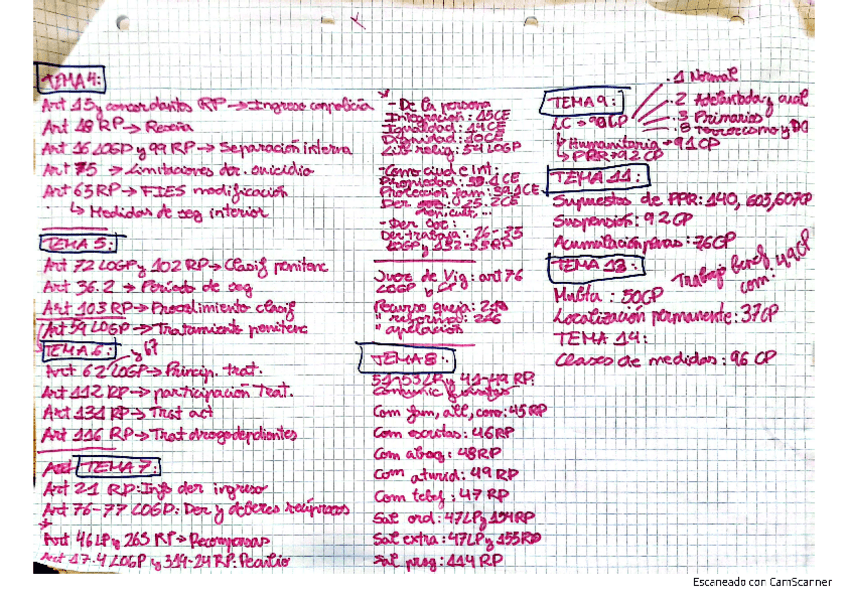 TEMA 4:
Art 15 y concordantes RP → Ingreso con policía
Art 18 RP → Reseña
Art 16 LOGP y 99 RP → Separación interna
Art 75 → Limitaciones der. suicidio
Art 65 RP → FIES modificación
↳ Medidas de seg interior
TEMA 5:
Art 72 LOGP y 102 RP → Clasif penitenc
Art 36.2 → Periodo de seg
Art 103 RP → Procedimiento clasif
Art 59 LOGP → Tratamiento penitenc
TEMA 6: y 67
Art 62 LOGP → Princip. trat.
Art 112 RP → participación Trat.
Art 131 RP → Trat act
Art 116 RP → Trat drogodepdientes
TEMA 7:
Art 21 RP: Info der ingreso
Art 76-77 LOGP: Der y deberes recíprocos
*
Art 46 LP y 263 RP → Recompensas
Art 17.4 LOGP y 314-24 RP: Peculio
* - De la persona
Integración: 15CE
Igualdad: 14CE
Dignidad: 10CE
Lib relig: 54 LOGP
- Como ciud e int:
Propiedad: 33.1 CE
Protección fam: 39.1CE
Der 25.2CE
- Der soc:
Der trabaja: 26-35
LOGP y 132-53RP
Juez de Vig: art 76
LOGP y CP
Recurso queja:
" reforma:
" apelación
TEMA 8:
51-53LP y 41-49 RP:
Comunic
Com fam, all, conv: 45RP
Com escritas: 46RP
Com abog: 48RP
Com autorid: 49 RP
Com telef: 47 RP
Sal ord: 47LP y 154RP
Sal extra: 47LP y 155RP
Sal prog: 114 RP
TEMA 9:
LC → 90CP
.1 Normal
.2 Adelantada y cual
.3 Primarios
.8 Terrorismo y DO
↳ Humanitaria → 91CP
↳ PPR → 92 CP
TEMA 11:
Supuestos de PPR: 140, 605, 607CP
Suspensión: 92CP
Acumulación penas: 76CP
TEMA 13:
Trabajo benef com: 49CP
Multa: 50CP
Localización permanente: 37CP
TEMA 14:
Clases de medidas: 96 CP
Escaneado con CamScanner